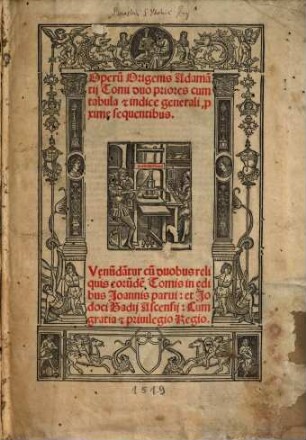 Operũ Origenis Adamã
tij Tomi duo priores cum
tabula & indice generali p
ximę sequentibus.
Vęnũdãtur cũ duobus reli
quis eorũdẽ Tomis in edi
bus Joannis parui: et Jo
doci Badij Ascensij: Cum
gratia & priuilegio Regio.
1519